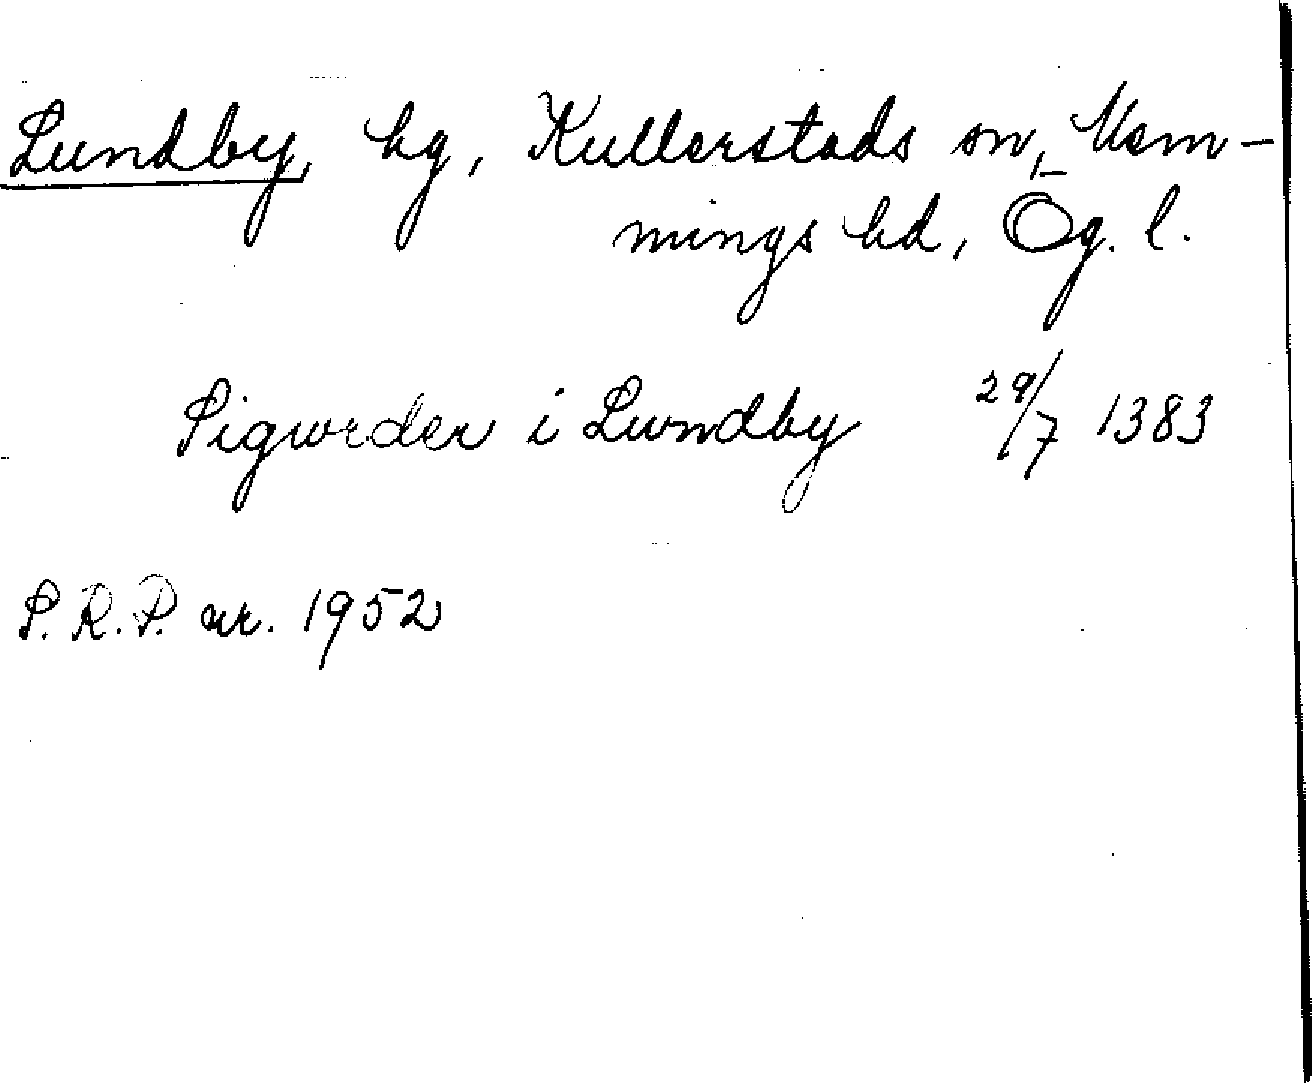 Lundby, hg, Kullerstads sn, Mem-
mings hd, Ög. l.
Sigurder i Lundby 29/7 1383
S. R. P. nr. 1952